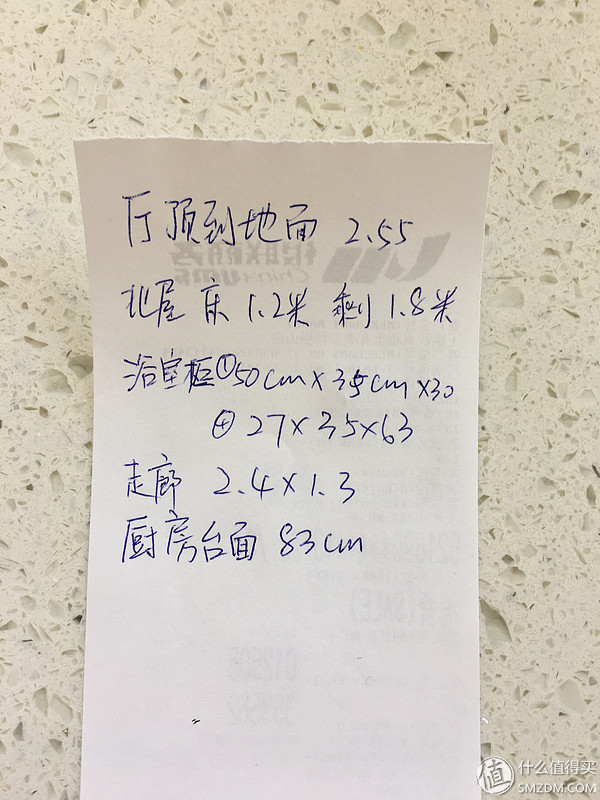 厅顶到地面 2.55
北屋 床 1.2米 剩 1.8米
浴室柜①50cm×35cm×30
⊕ 27×35×63
走廊 2.4×1.3
厨房台面 83cm
值 什么值得买
SMZDM.COM